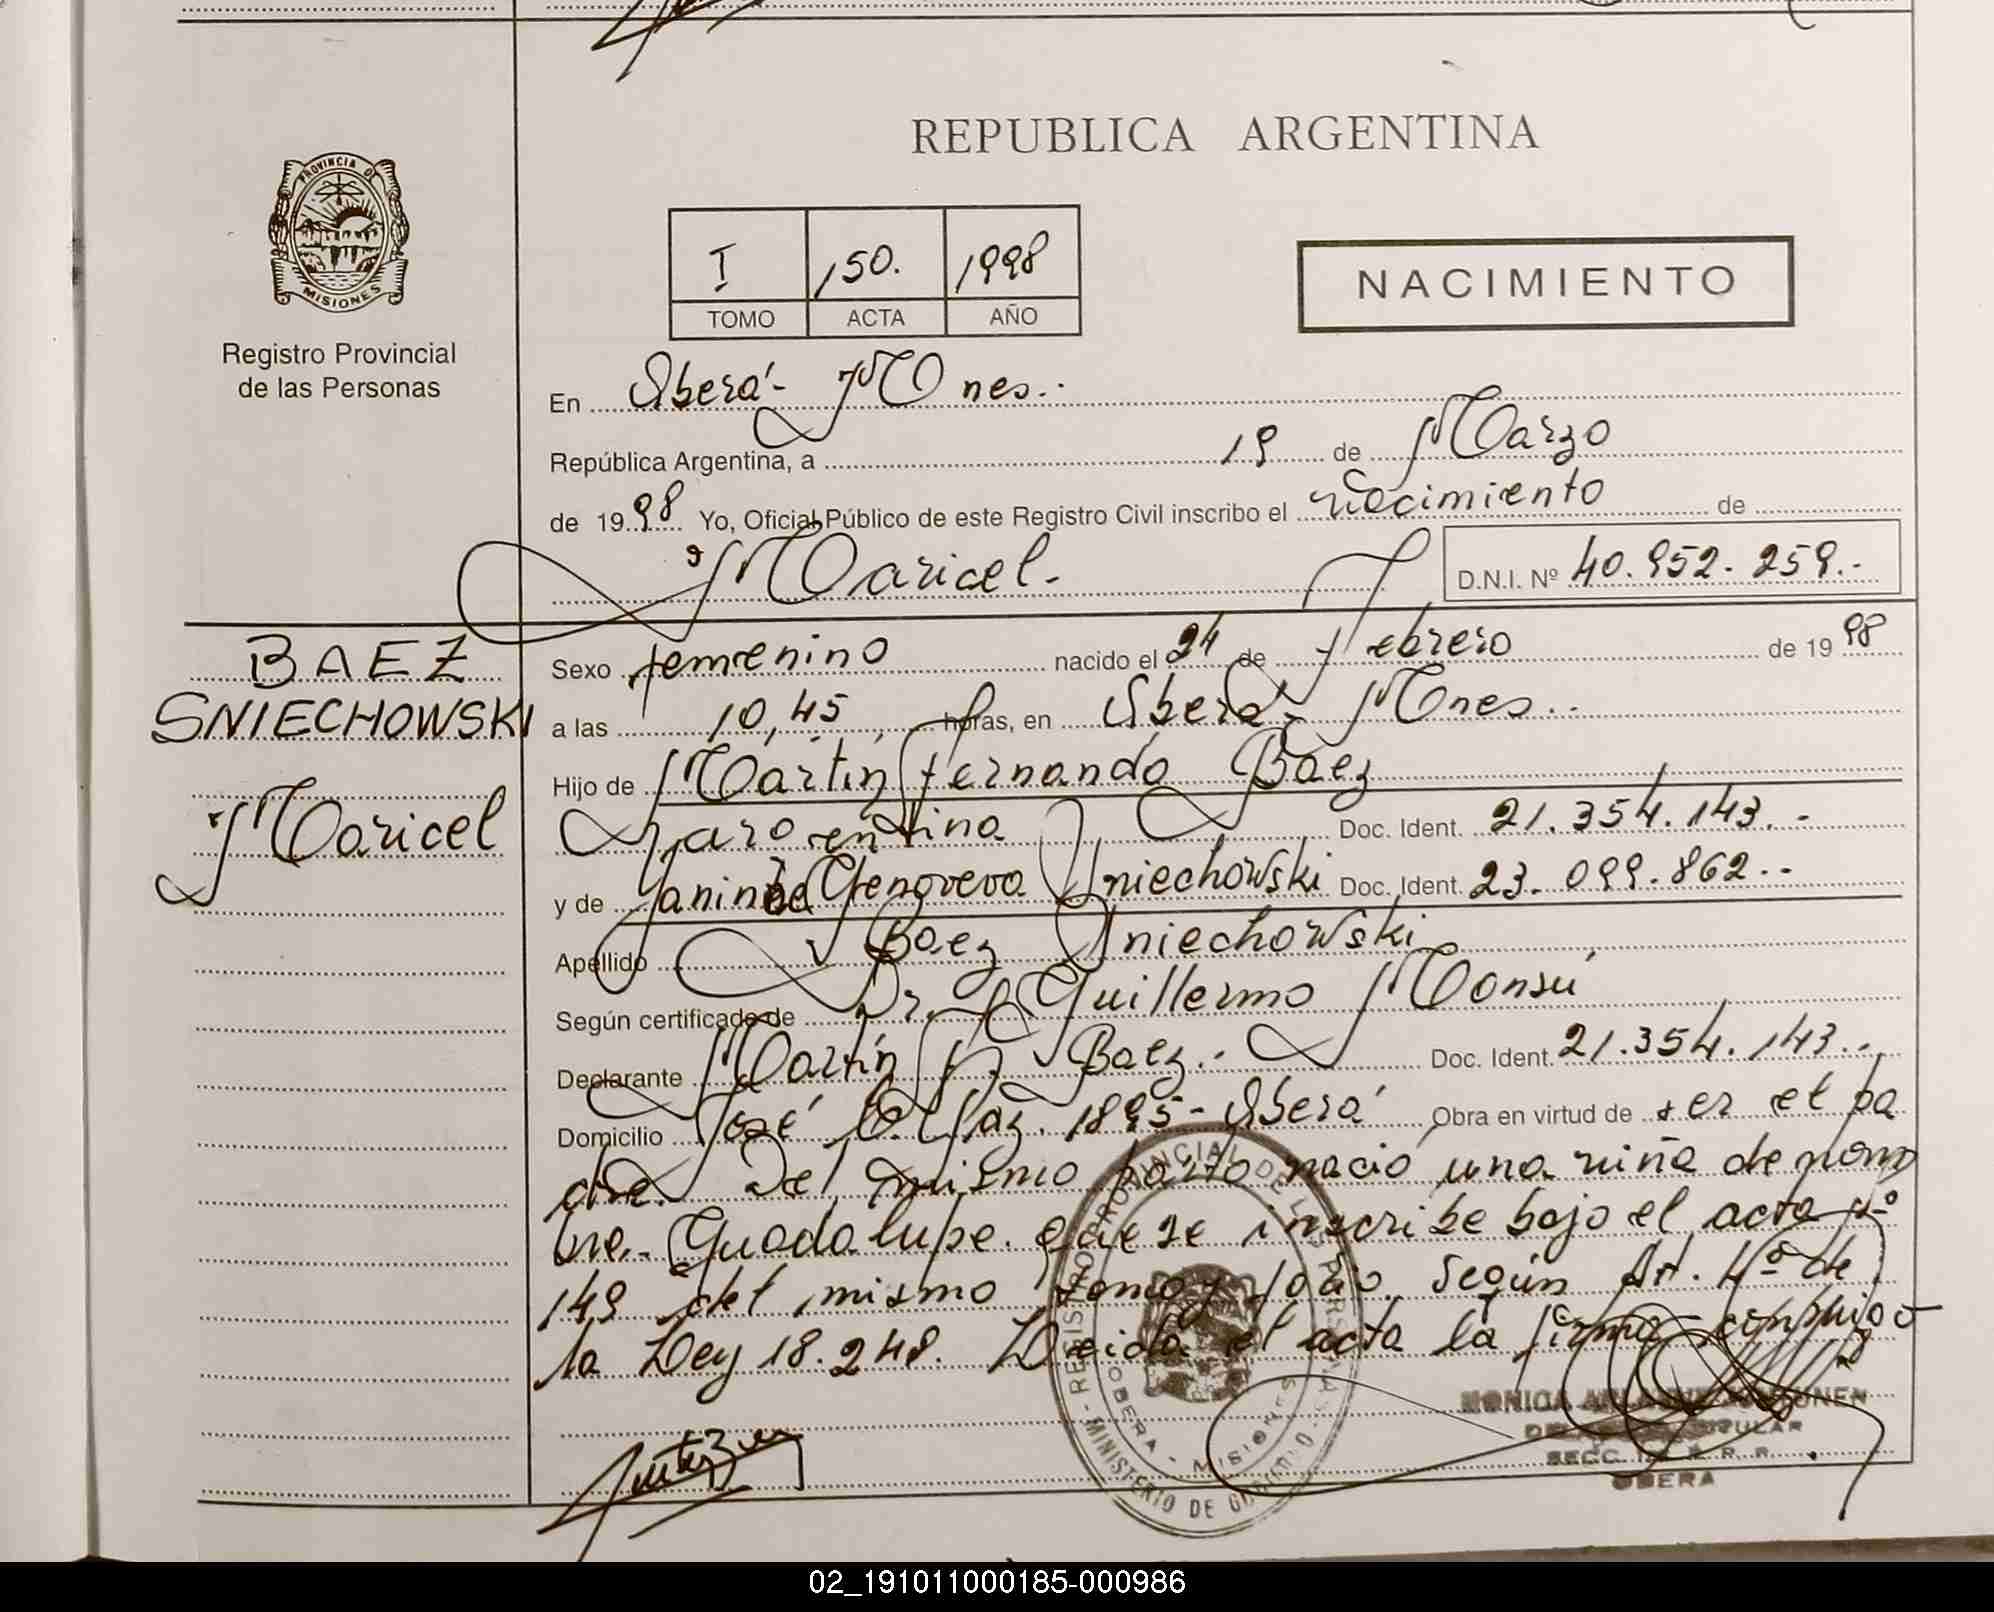 REPUBLICA ARGENTINA
PROVINCIA DE
MISIONES
Registro Provincial
de las Personas
I 150. 1998
TOMO ACTA AÑO
NACIMIENTO
En Oberá - Mnes.
República Argentina, a 19 de Marzo
de 1998 Yo, Oficial Público de este Registro Civil inscribo el nacimiento de
Maricel.-
D.N.I. Nº 40.952.259.-
BAEZ
SNIECHOWSKI
Maricel
Sexo femenino nacido el 24 de Febrero de 1998
a las 10,45 horas, en Oberá - Mnes..
Hijo de Martín Fernando Baez
Argentina Doc. Ident. 21.354.143.-
y de Genoveva Sniechowski Doc. Ident. 23.099.862.-
Apellido Baez Sniechowski
Según certificado de Dr. Guillermo Monsú
Declarante Martín F. Baez.- Doc. Ident. 21.354.143..
Domicilio José C. Paz. 1895 - Oberá Obra en virtud de ser el pa
dre. Del mismo parto nació una niña de nom
bre. Guadalupe. que se inscribe bajo el acta nº
149 del mismo tomo y folio. Según Art. 4º de
la Ley 18.248. Leida el acta la firma conmigo
REGISTRO PROVINCIAL DE LAS PERSONAS - MINISTERIO DE GOBIERNO
OBERA - MISIONES
MONICA
SECC.
OBERA
02_191011000185-000986